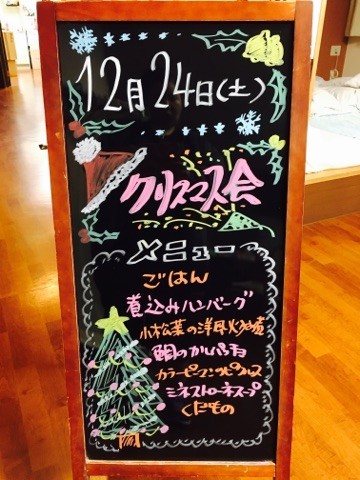 12月24日(土)
クリスマス会
メニュー
ごはん
煮込みハンバーグ
小松菜の洋風火油煮
鯛のカルパッチョ
カラーピーマンピクルス
ミネストローネスープ
くだもの